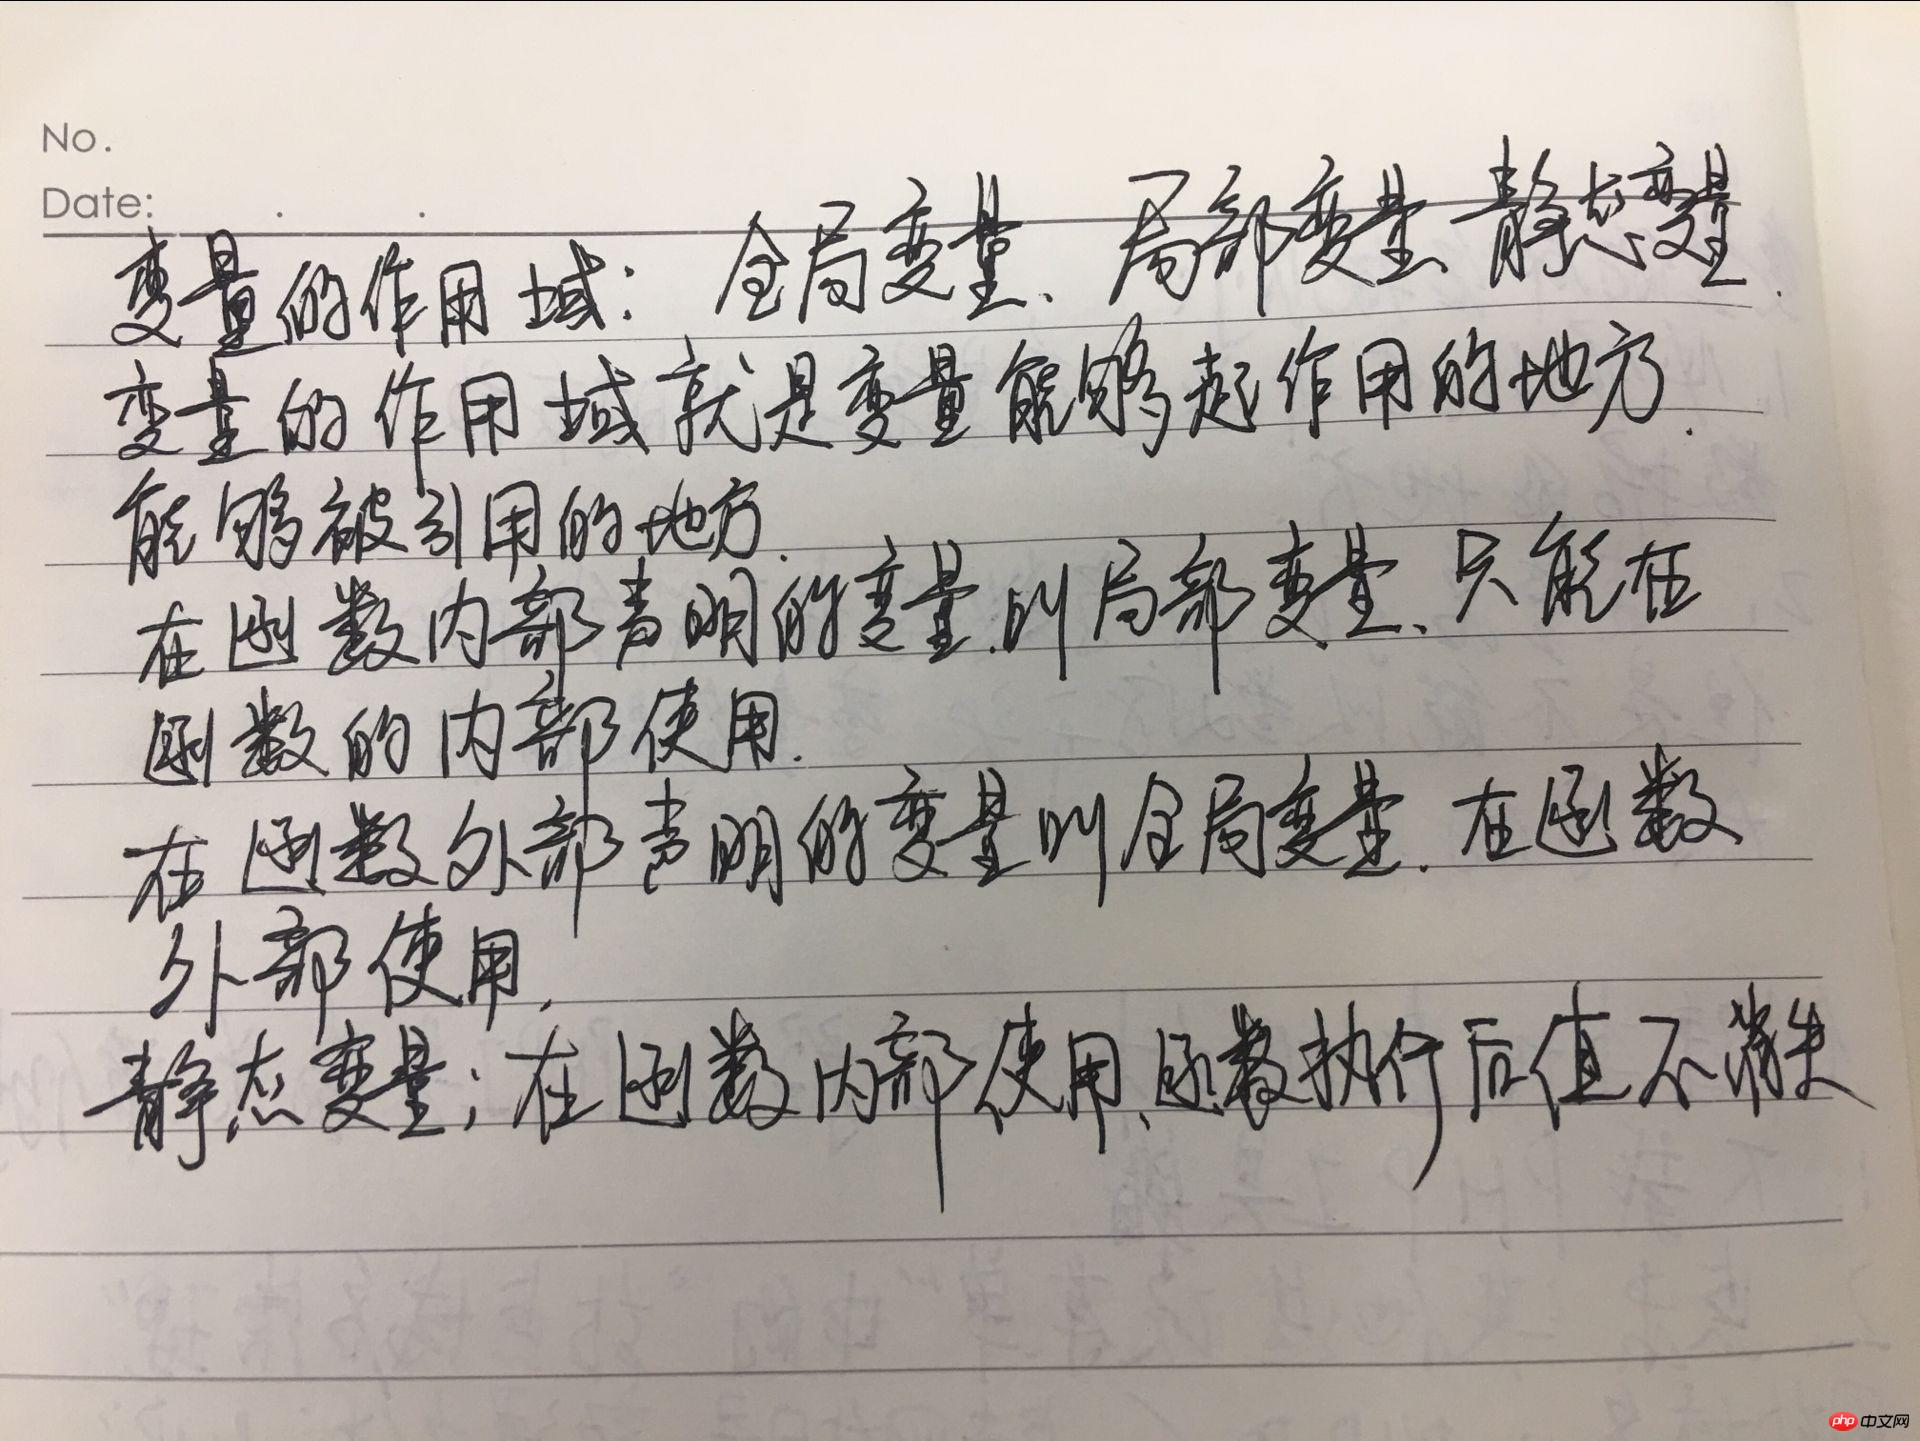 No.
Date: . .
变量的作用域: 全局变量、局部变量、静态变量.
变量的作用域就是变量能够起作用的地方.
能够被引用的地方.
在函数内部声明的变量.叫局部变量、只能在
函数的内部使用.
在函数外部声明的变量叫全局变量.在函数
外部使用.
静态变量;在函数内部使用、函数执行后值不消失
php 中文网